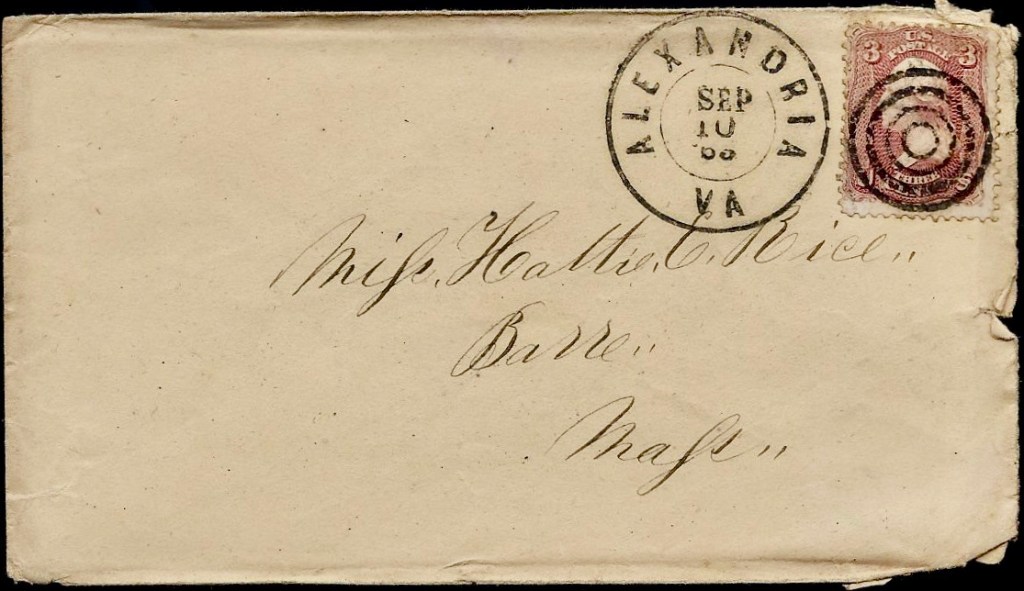 ALEXANDRIA
SEP
10
VA
U.S.
POSTAGE
3 3
Miſs. Hattie. C. Rice.,,
Barre,,
Maſs,,